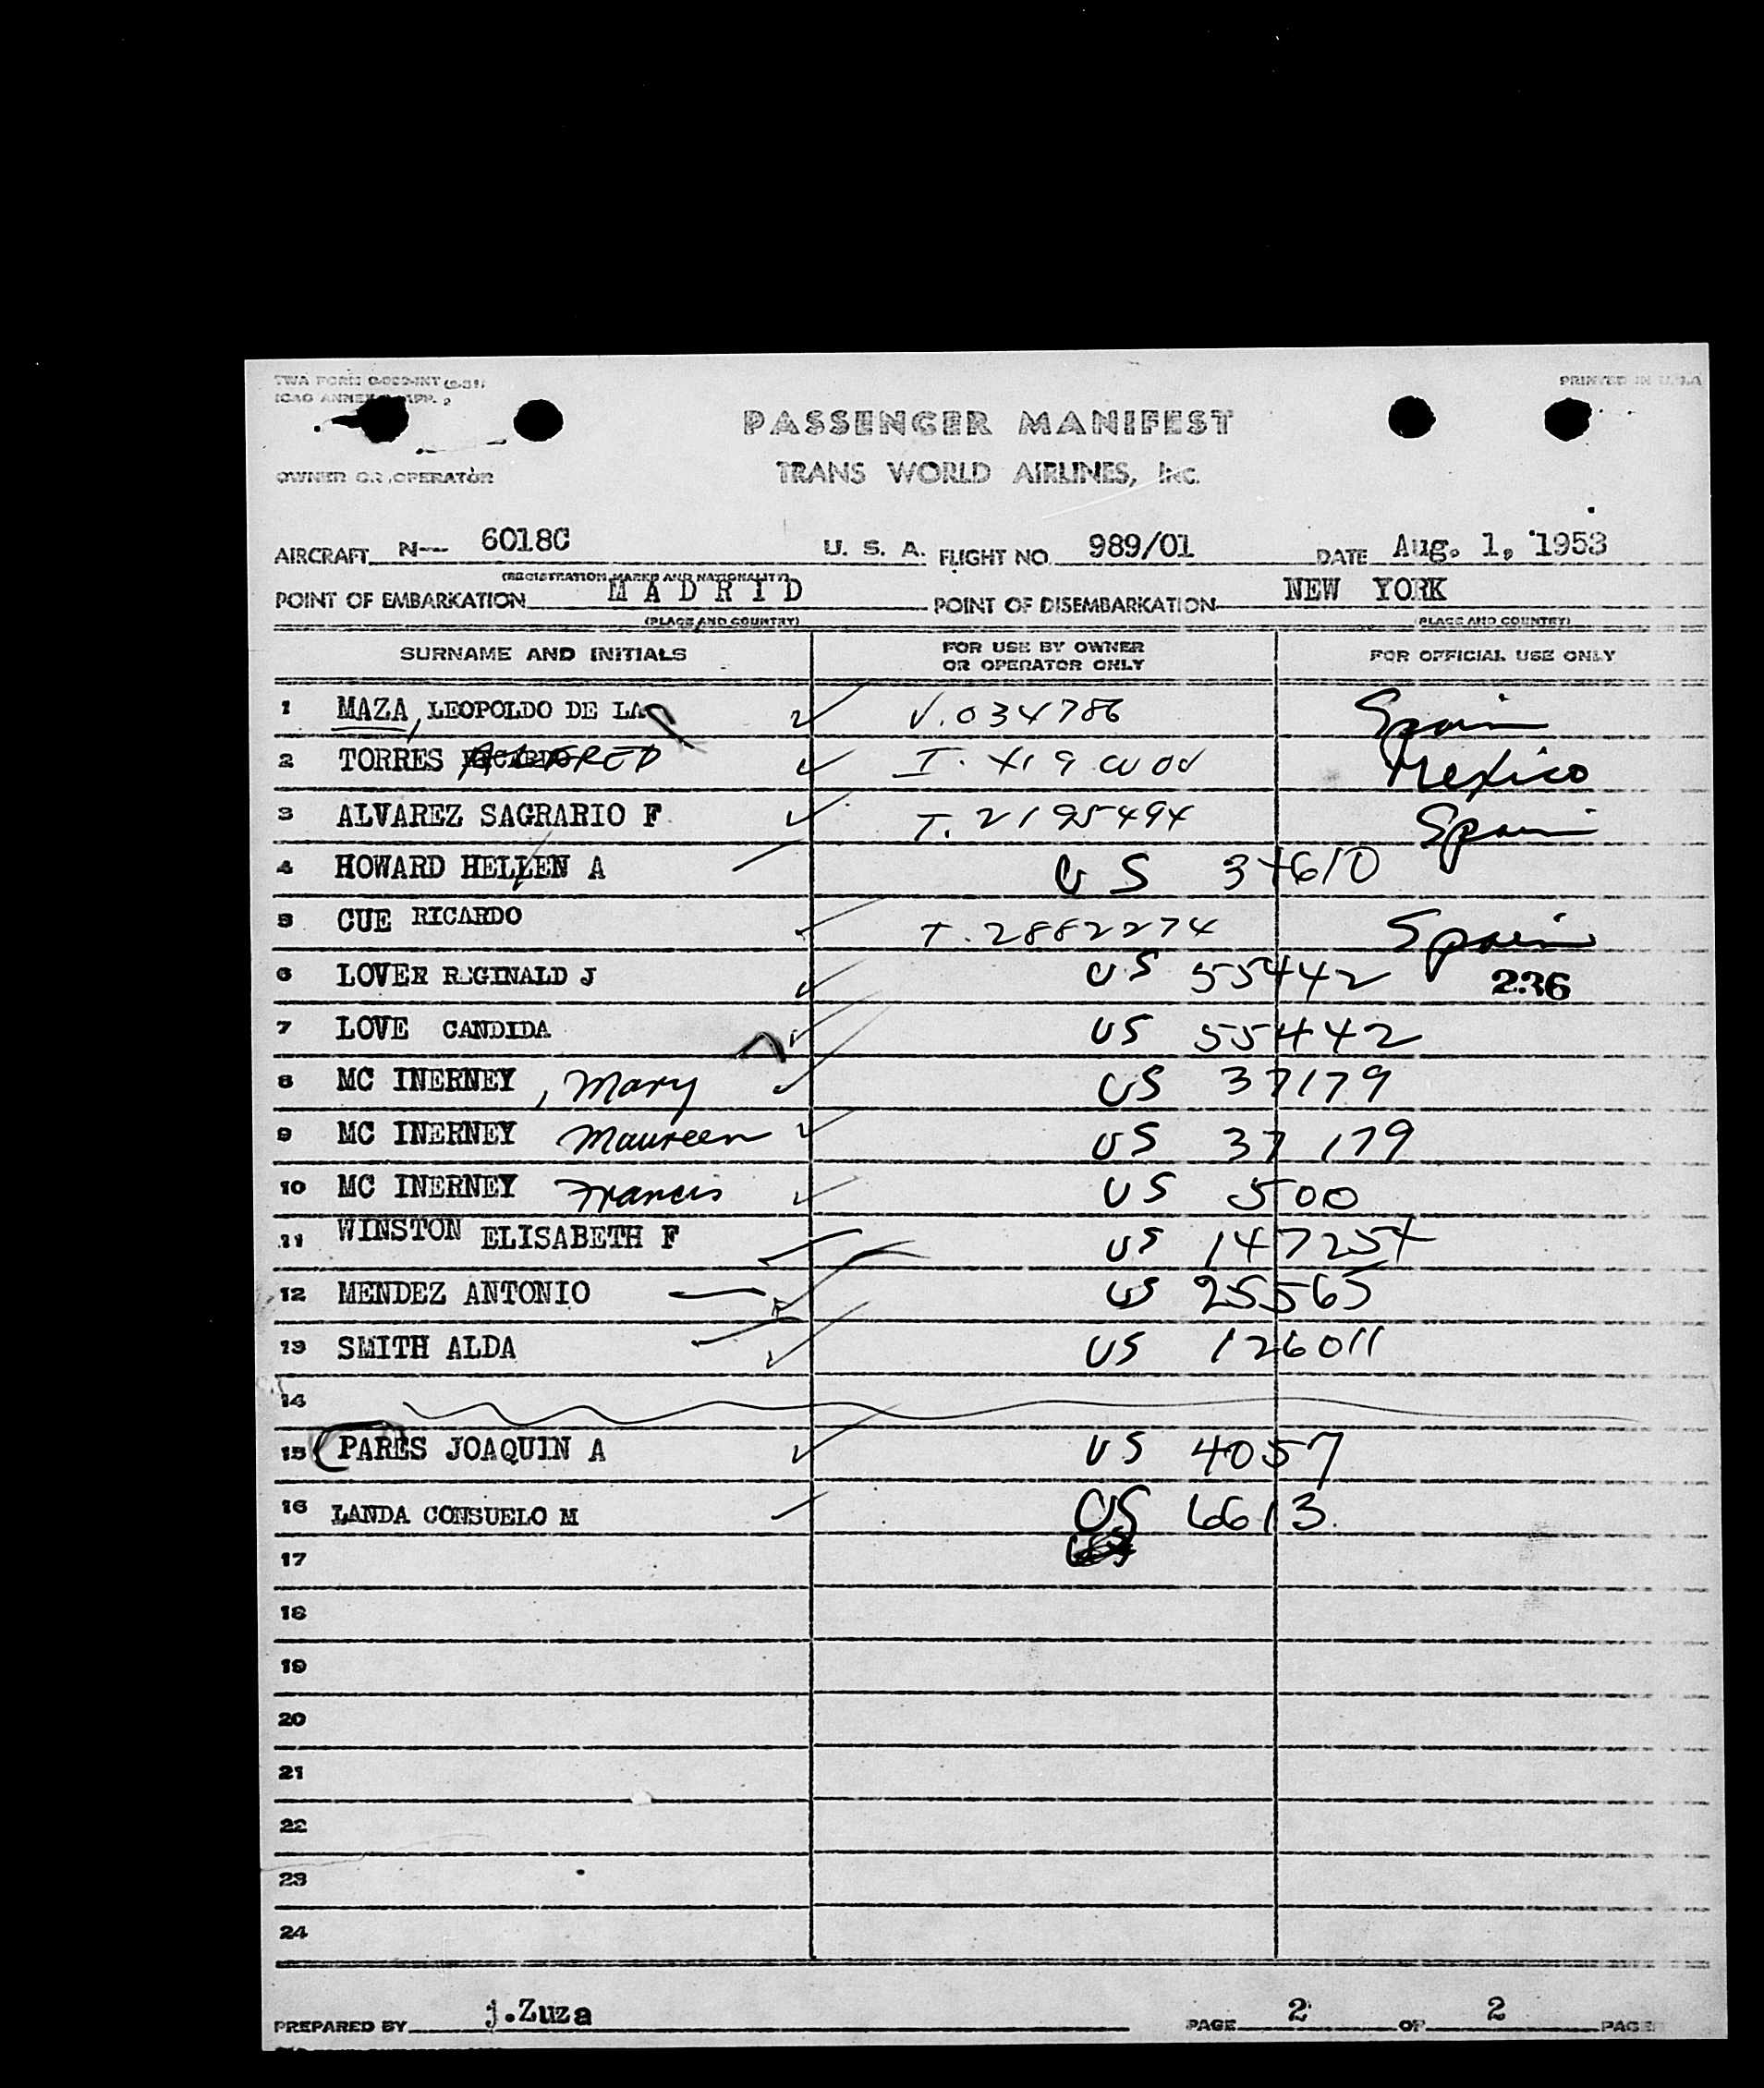 TWA FORM
ICAO ANNEX
PRINTED IN U.S.A
PASSENGER MANIFEST
OWNER OR OPERATOR
TRANS WORLD AIRLINES, INC.
AIRCRAFT N— 6018C U. S. A. FLIGHT NO. 989/01 DATE Aug. 1, 1953
(REGISTRATION MARKS AND NATIONALITY)
POINT OF EMBARKATION MADRID POINT OF DISEMBARKATION NEW YORK
(PLACE AND COUNTRY) (PLACE AND COUNTRY)
SURNAME AND INITIALS FOR USE BY OWNER OR OPERATOR ONLY FOR OFFICIAL USE ONLY
1 MAZA, LEOPOLDO DE LA V.034786 Spain
2 TORRES Mexico
3 ALVAREZ SAGRARIO F T. 2195494 Spain
4 HOWARD HELLEN A US 37610
5 CUE RICARDO T. 2882274 Spain
6 LOVER REGINALD J US 55442 236
7 LOVE CANDIDA US 55442
8 MC INERNEY, Mary US 37179
9 MC INERNEY Maureen US 37179
10 MC INERNEY Francis US 500
11 WINSTON ELISABETH F US 147254
12 MENDEZ ANTONIO US 25565
13 SMITH ALDA US 126011
14
15 PARES JOAQUIN A US 4057
16 LANDA CONSUELO M US 6613
17
18
19
20
21
22
23
24
PREPARED BY j.Zuza PAGE 2 OF 2 PAGE